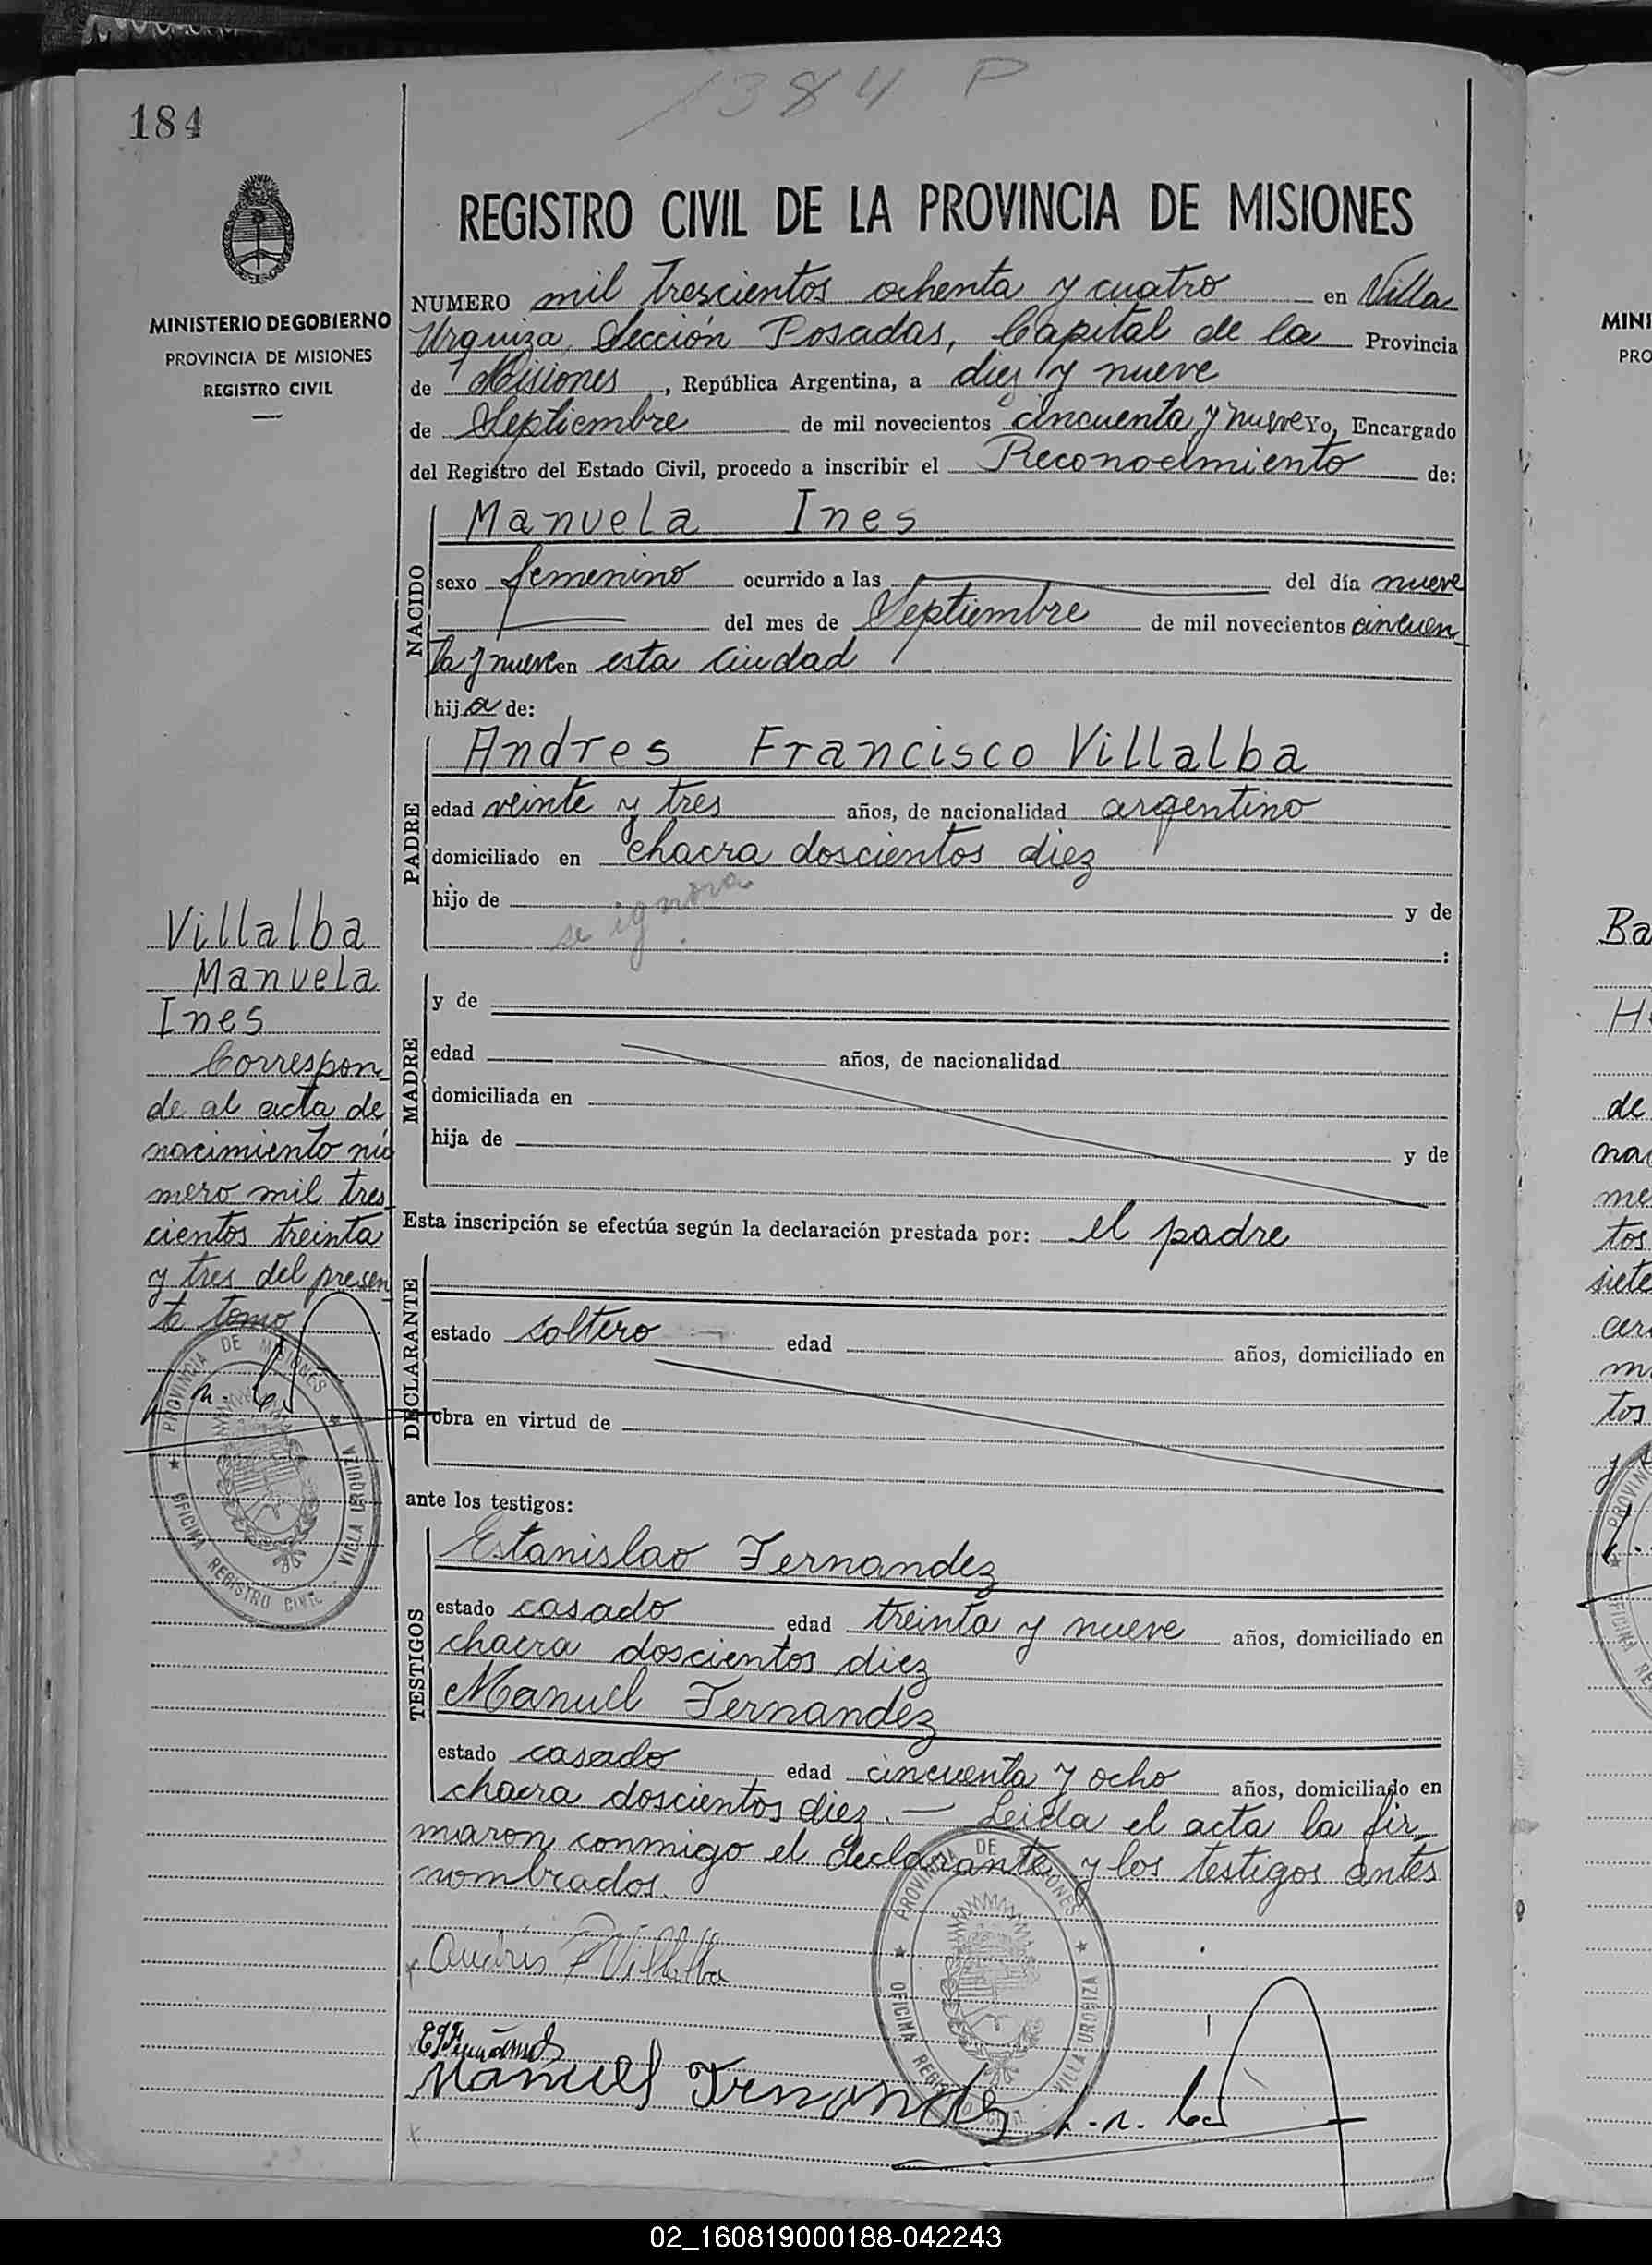 1384 P
184
REGISTRO CIVIL DE LA PROVINCIA DE MISIONES
MINISTERIO DE GOBIERNO
PROVINCIA DE MISIONES
REGISTRO CIVIL
NUMERO mil trescientos ochenta y cuatro en Villa
Urquiza, Sección Posadas, Capital de la Provincia
de Misiones, República Argentina, a diez y nueve
de Septiembre de mil novecientos cincuenta y nueve yo, Encargado
del Registro del Estado Civil, procedo a inscribir el Reconocimiento de:
NACIDO
Manuela Ines
sexo femenino ocurrido a las del día nueve
del mes de Septiembre de mil novecientos cincuen-
ta y nueve en esta ciudad
hija de:
PADRE
Andres Francisco Villalba
edad veinte y tres años, de nacionalidad argentino
domiciliado en chacra doscientos diez
hijo de y de
se ignora
:
MADRE
y de
edad años, de nacionalidad
domiciliada en
hija de y de
Esta inscripción se efectúa según la declaración prestada por: el padre
DECLARANTE
estado soltero edad años, domiciliado en
obra en virtud de
ante los testigos:
TESTIGOS
Estanislao Fernandez
estado casado edad treinta y nueve años, domiciliado en
chacra doscientos diez
Manuel Fernandez
estado casado edad cincuenta y ocho años, domiciliado en
chacra doscientos diez.— Leida el acta la fir-
maron conmigo el declarante y los testigos antes
nombrados.
Andrés F Villalba
Manuel Fernandez
PROVINCIA DE MISIONES
OFICINA REGISTRO CIVIL VILLA URQUIZA
Villalba
Manuela
Ines
Correspon
de al acta de
nacimiento nú
mero mil tres
cientos treinta
y tres del presen
te tomo
PROVINCIA DE MISIONES
OFICINA REGISTRO CIVIL VILLA URQUIZA
MINI
PRO
Ba
H
de
na
me
tos
siete
cer
m
tos
y
02_160819000188-042243